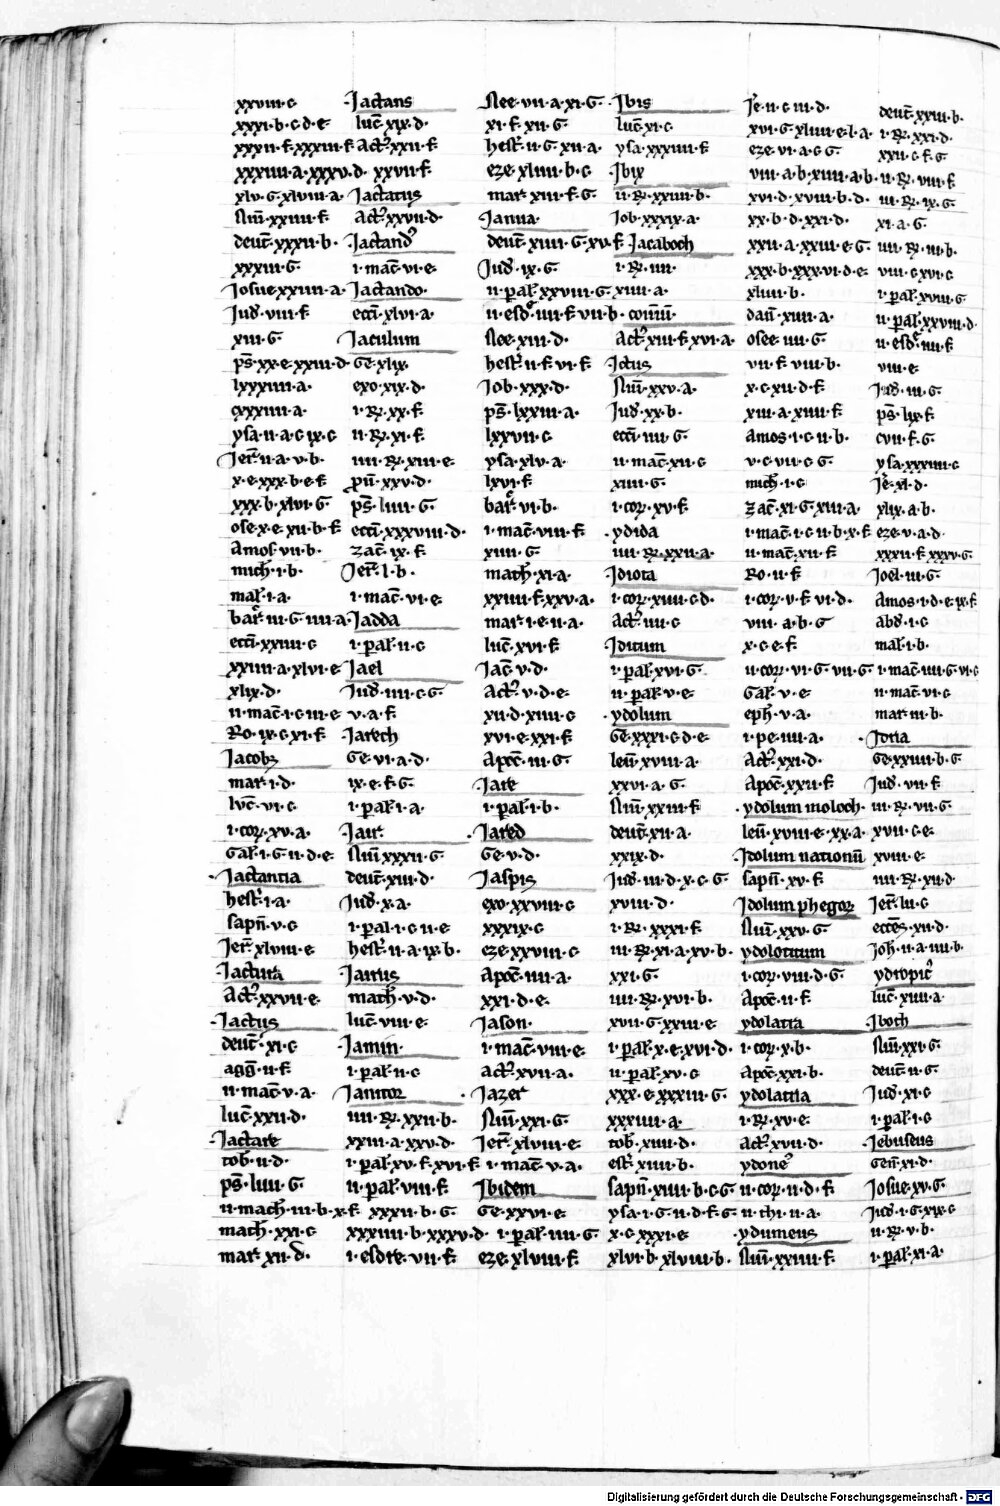 xxviii·c
xxxi·b·c·d·e
xxxii·f·xxxiii·f
xxxiiii·a·xxxv·d
xlv·G·xlviii·a
Nm̄·xxiiii·f
deut̄·xxxii·b·
xxxiii·G
Josue·xxiiii·a·
Jud·viii·f
xiii·G
ps̄·xx·e·xxiii·d·
lxxxiiii·a·
cxxxiiii·a·
ysa·ii·a·c·ix·c
Jer̄·ii·a·v·b·
x·e·xxx·b·e·f
xxx·b·xlvi·G
ose·x·e·xii·b·f
Amos·vii·b·
mich·i·b·
mal·i·a·
bar·iii·G·iiii·a·
ecci·xxiiii·c
xxiiii·a·xlvi·e
xlix·d·
ii·mac̄·i·c·iii·e
Ro·ix·c·xi·f
Jacob
mat·i·d·
luc̄·vi·c
i·cor·xv·a·
Gal·i·G·ii·d·e
Jactantia
hest·i·a·
sapn̄·v·c
Jer̄·xlviii·e
Jactura
Act·xxvii·e·
Jactus
deut̄·xi·c
agḡ·ii·f
ii·mac̄·v·a·
luc̄·xxii·d·
Jactare
tob·ii·d·
ps̄·liiii·G
ii·mach·iii·b·x·f
math·xxi·c
mar·xii·d·
Jactans
luc̄·xix·d·
Act·xxii·f
xxvii·f·
Jactatus
Act·xxvii·d·
Jactand
i·mac̄·vi·e·
Jactando·
ecci·xlvi·a·
Jaculum
Ge·xlix·
exo·xix·d·
i·R·xx·f
ii·R·xi·f·
iiii·R·xiii·e·
pu·xxv·d·
ps̄·liiii·G
ecci·xxxviii·d·
zac̄·ix·f
Jer̄·l·b·
i·mac̄·vi·e
Jadda
i·pal·ii·c
Jael
Jud·iiii·c·G·
v·a·f
Jarech
Ge·vi·a·d·
ix·e·f·G·
i·pal·i·a·
Jair·
Nm̄·xxxii·G
deut̄·xiii·d·
Jud·x·a·
i·pal·i·c·ii·e
hest·ii·a·ix·b·
Jairus
math·v·d·
luc̄·viii·e·
Jamin·
i·pal·ii·c
Janitor
iiii·R·xxii·b·
xxiii·a·xxv·d·
i·pal·xv·f·xvi·f
ii·pal·viii·f
xxxii·b·G·
xxxiiii·b·xxxv·d·
i·esdre·vii·f
Nee·vii·a·xi·G·
xi·f·xii·G·
hest·ii·G·xii·a·
eze·xliiii·b·c
mar·xiii·f·G·
Janua·
deut̄·xiiii·G·xv·f
Jud·ix·G·
ii·pal·xxviii·G·
ii·esd·iiii·f·vii·b·
Nee·xiii·d·
hest·ii·f·vi·f
Job·xxx·d·
ps̄·lxxiii·a·
lxxvii·c
ysa·xlv·a·
lxvi·f
bar·vi·b·
i·mac̄·viii·f
xiiii·G
math·xi·a·
xxiiii·f·xxv·a·
mar·i·e·ii·a·
luc̄·xvi·f
Jac̄·v·d·
Act·v·d·e·
xii·d·xiiii·c
xvi·e·xxi·f
Apoc̄·iii·G·
Jare
i·pal·i·b·
Jared
Ge·v·d·
Jaspis
exo·xxviii·c
xxxix·c
eze·xxviii·c
Apoc̄·iiii·a·
xxi·d·e·
Jason·
i·mac̄·viii·e
act·xvii·a·
Jazer
Nm̄·xxi·G·
Jer̄·xlviii·e·
i·mac̄·v·a·
Ibidem
Ge·xxvi·e
i·pal·iiii·G
eze·xlviii·f
Ibis
luc̄·xi·c
ysa·xxxiiii·f
Ibix
ii·R·xxiiii·b·
Job·xxxix·a·
Jacaboch
i·R·iiii·
xiiii·a·
cōiūi·
Act·xiii·f·xvi·a·
Ictus
Nm̄·xxv·a·
Jud·xx·b·
ecci·iiii·G·
ii·mac̄·xii·c
xiiii·G·
i·cor·xv·f
ydida
iiii·R·xxii·a·
Idiota
i·cor·xiiii·c·d·
act·iiii·c
Iditum
i·pal·xvi·G·
ii·pal·v·e·
ydolum
Ge·xxxi·c·d·e
leui·xviii·a·
xxvi·a·G·
Nm̄·xxiii·f
deut̄·xii·a·
xxix·d·
Jud·iii·d·x·c·G
xviii·d·
i·R·xxxi·f
iii·R·xi·a·xv·b·
xxi·G
iiii·R·xvi·b·
xvii·G·xxiii·e
i·pal·x·e·xvi·d·
ii·pal·xv·c
xxx·e·xxxiii·G·
xxxiiii·a·
tob·xiiii·d·
est·xiiii·b·
sapn̄·xiiii·b·c·G
ysa·i·G·ii·d·f·G
x·c·xxxi·e
xlvi·b·xlviii·b·
Je·ii·c·iii·d·
xvi·G·xliiii·e·l·a·
eze·vi·a·c·G
viii·a·b·xiiii·a·b·
xvi·d·xviii·b·d·
xx·b·d·xxi·d·
xxii·a·xxiii·e·G
xxx·b·xxxvi·d·e·
xliiii·b·
dan̄·xiiii·a·
osee·iiii·G·
vii·f·viii·b·
x·c·xii·d·f
xiii·a·xiiii·f
Amos·i·c·ii·b·
v·c·vii·c·G·
mich·i·c
zac̄·xi·G·xiii·a·
i·mac̄·i·c·ii·b·x·f
ii·mac̄·xii·f
Ro·ii·f
i·cor·v·f·vi·d·
viii·a·b·G
x·c·e·f
ii·cor·vi·G·vii·G·
Gal·v·e
eph·v·a·
i·pe·iiii·a·
Act·xxi·d·
Apoc̄·xxii·f
ydolum moloch·
leui·xviii·e·xx·a·
Idolum nationū
sapn̄·xv·f
Idolum phegor
Nm̄·xxv·G
ydolotitum
i·cor·viii·d·G·
Apoc̄·ii·f
ydolatra
i·cor·x·b·
apoc̄·xxi·b·
ydolatria
i·R·xv·e
act·xvii·d·
ydone
ii·cor·ii·d·f
ii·thi·ii·a·
ydumeus
Nm̄·xxiiii·f
deut̄·xxiii·b·
i·R·xxi·d·
xxii·c·f·G
ii·R·viii·f
iii·R·ix·G·
xi·a·G·
iiii·R·iii·b·
viii·c·xvi·c
i·pal·xviii·G
ii·pal·xxviii·d·
ii·esd·iiii·f
viii·e
Jud·iii·G·
ps̄·lix·f
cvii·f·G·
ysa·xxxiiii·c
Je·xl·d·
xlix·a·b·
eze·v·a·d·
xxxii·f·xxxv·G
Joel·iii·G·
Amos·i·d·e·ix·f
abd·i·c
mal·i·b·
i·mac̄·iiii·G·vi·c
ii·mac̄·vi·c
mar·iii·b·
Idria
Ge·xxiiii·b·G
Jud·vii·f
iii·R·vii·G·
xvii·c·e·
xviii·e·
iiii·R·xii·d
Jer̄·lii·c
ecces·xii·d·
Joh·ii·a·iiii·b·
ydropic
luc̄·xiiii·a
Iboth
Nm̄·xxi·G·
deut̄·ii·G·
Jud·xi·c
i·pal·i·c
Jebuseus
Gen̄·xi·d·
Josue·xv·G
Jud·i·G·xix·c
ii·R·v·b·
i·pal·xi·a·
Digitalisierung gefördert durch die Deutsche Forschungsgemeinschaft - DFG